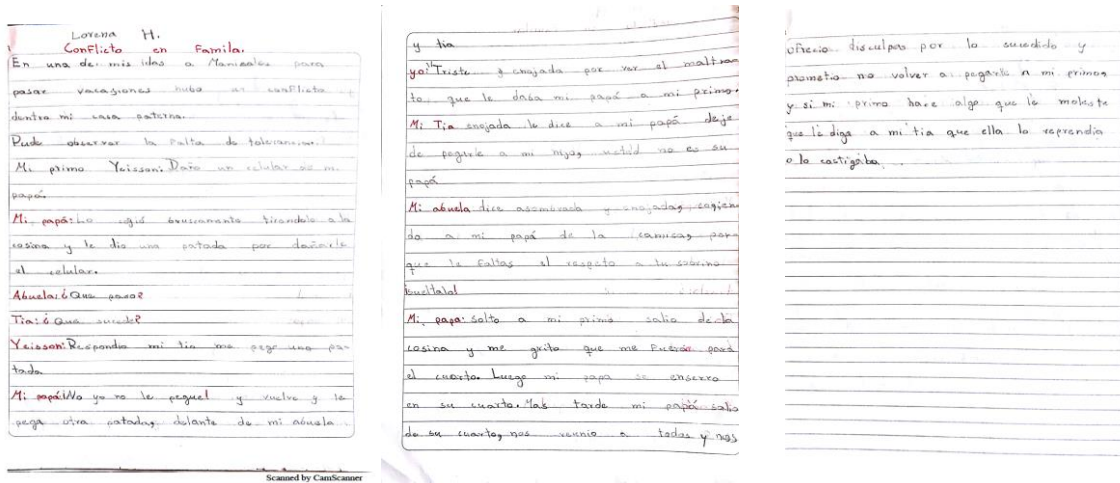 Lorena H.
Conflicto en Famila.
En una de mis idas a Manizales para
pasar vacasiones hubo un conflicto
dentro mi casa paterna.
Pude observar la falta de tolerancia.
Mi primo Yeisson: Daño un celular de mi
papá.
Mi papá: Lo cogió bruscamente tirandolo a la
cosina y le dio una patada por dañarle
el celular.
Abuela: ¿Que paso?
Tia: ¿Que sucede?
Yeisson: Respondio mi tio me pego una pa-
tada
Mi papá: ¡No yo no le pegue! y vuelve y le
pega otra patada, delante de mi abuela
Scanned by CamScanner
y tia
yo: Triste y enojada por ver el maltra
to que le daba mi papá a mi primo.
Mi Tia enojada le dice a mi papá deje
de pegarle a mi hijo, usted no es su
papá
Mi abuela dice asombrada y enojada, cogien
do a mi papá de la camisa, por
que le faltas el respeto a tu sobrino
sueltalo!
Mi papá: Solto a mi primo salio de la
cosina y me grito que me fuera para
el cuarto. Luego mi papa se enserro
en su cuarto. Mas tarde mi papá salio
de su cuarto, nos reunio a todos y nos
ofrecio disculpas por lo sucedido y
prometio no volver a pegarle a mi primo,
y si mi primo hace algo que le moleste
que le diga a mi tia que ella lo reprendia
o lo castigaba.